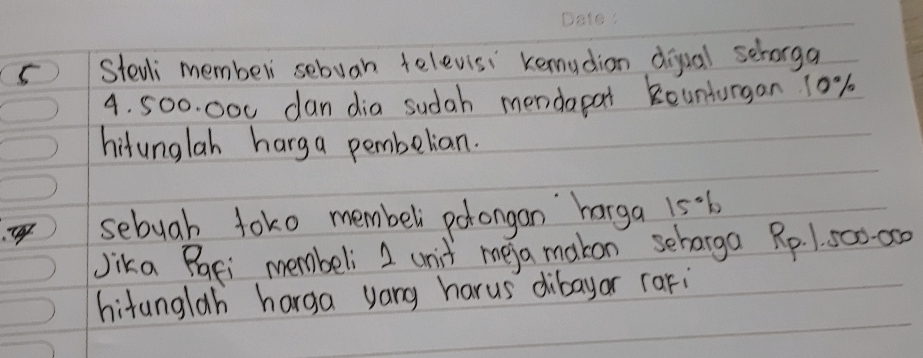 Date :
5 Steuli membeli sebuah televisi kemudian dijual seharga
4.500.000 dan dia sudah mendapat keuntungan 10%
hitunglah harga pembelian.
sebuah toko membeli potongan harga 15%
Jika Rafi membeli 1 unit meja makan seharga Rp.1.500.000
hitunglah harga yang harus dibayar rafi